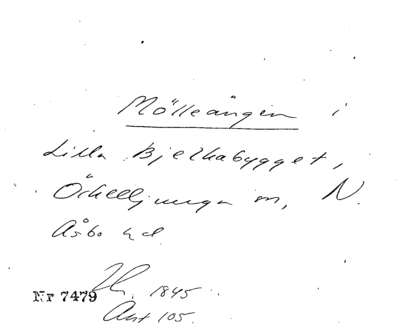 Mölleängen i
Lilla Bjelkabygget,
Örkelljunga sn, N.
Åsbo hd
1845
Nr 7479
Akt 105.